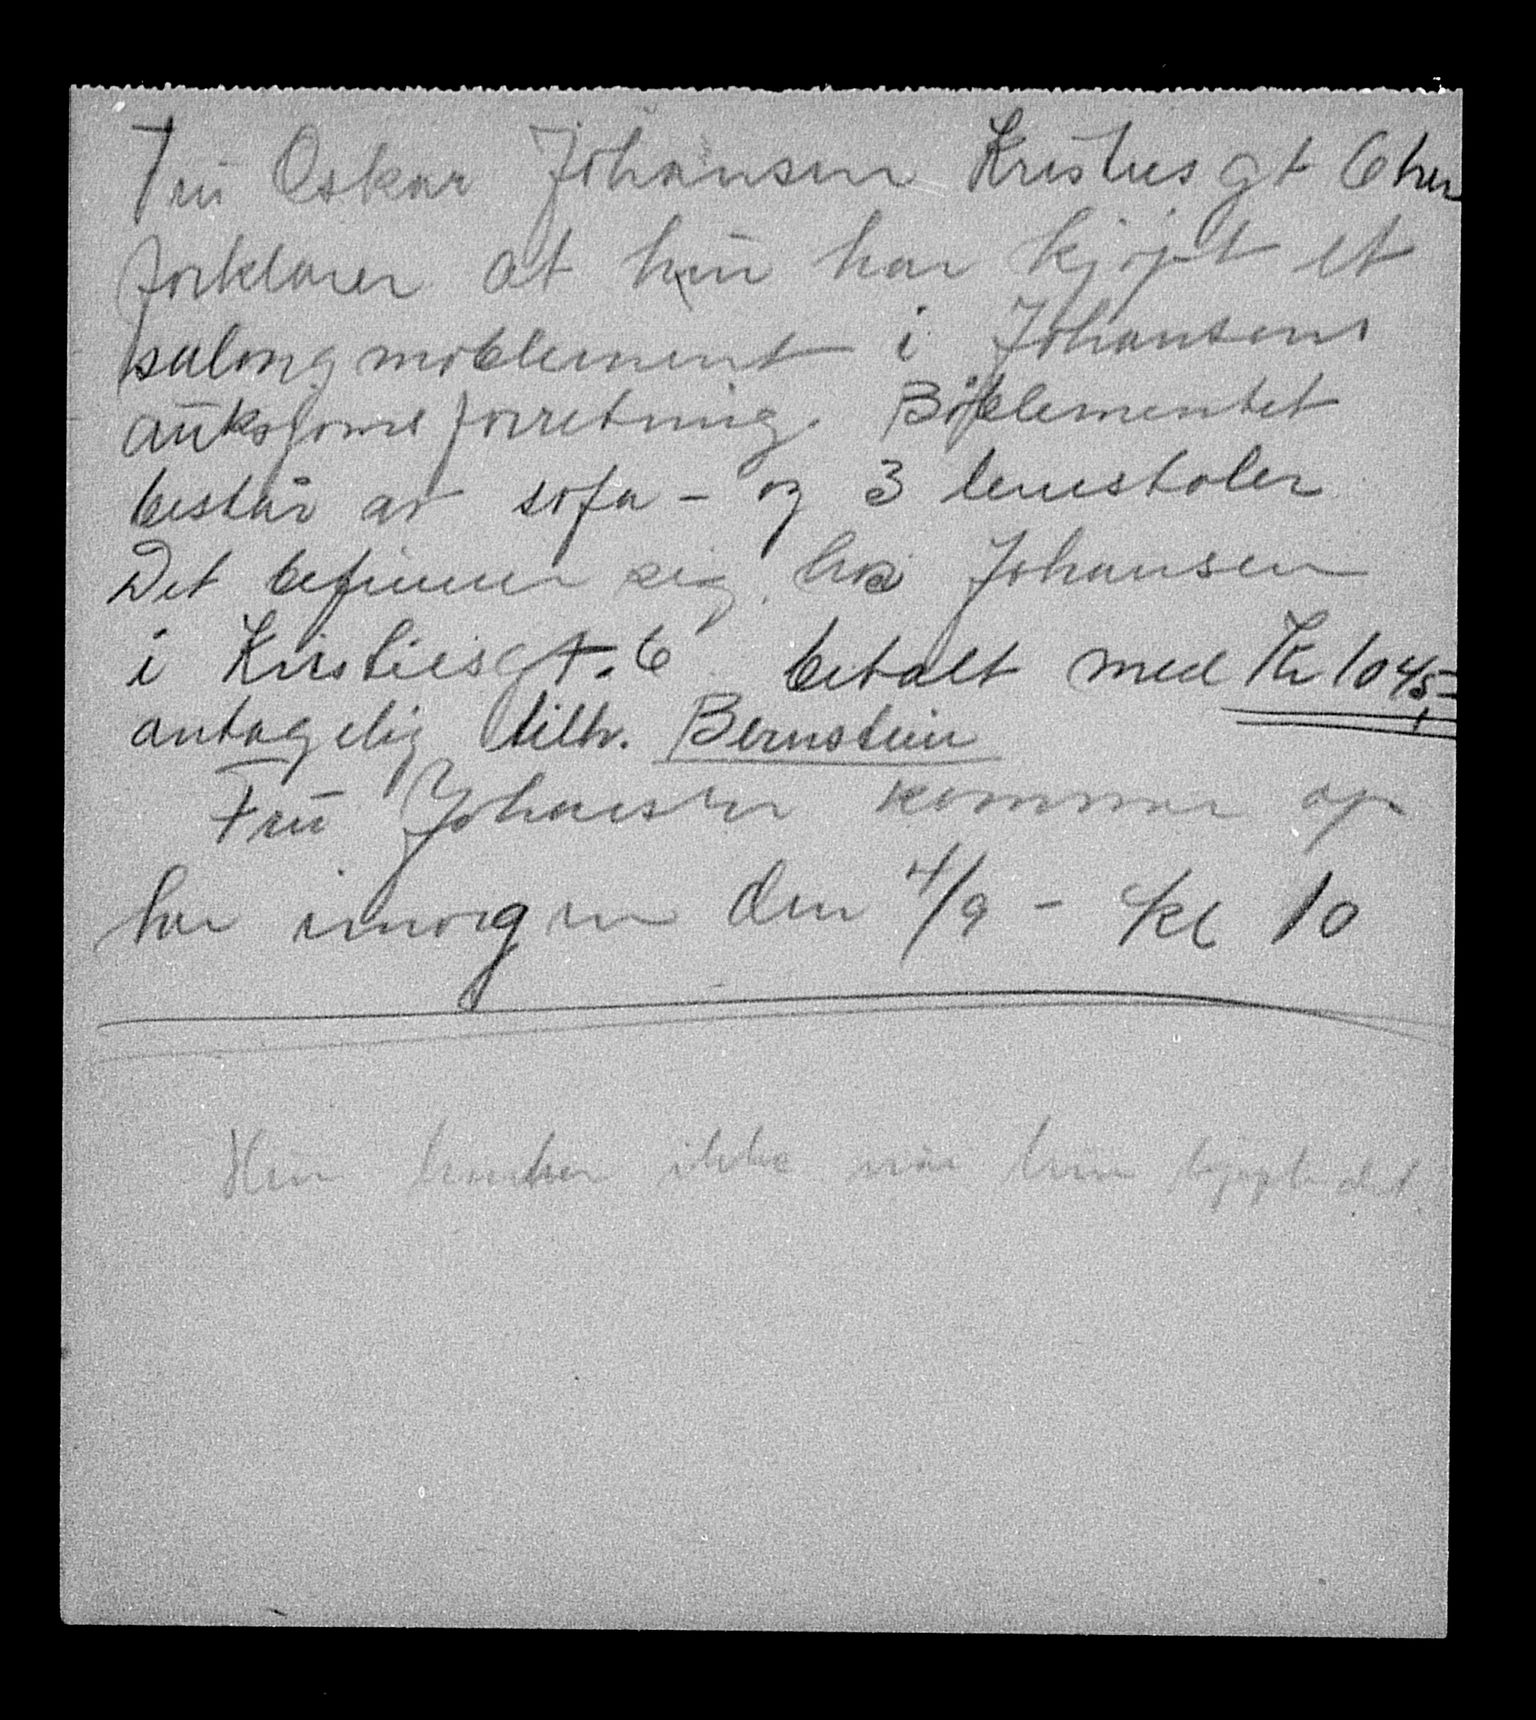 Frü Oskar Johansen Kristiesgt 6 her
forklarer at hün har kjöpt et
salongmöblement i Johansens
aüksjons forretning. Böblementet
består av sofa - og 3 lenestoler
Det befinner seig hos Johansen
i Kristiesgt. 6 betalt med Kr 1045,-
antagelig tilh. Bernstein
Frü Johansen kommer op
her imorgen den 4/9 - Kl 10
Hün husker ikke når hün kjøpte det